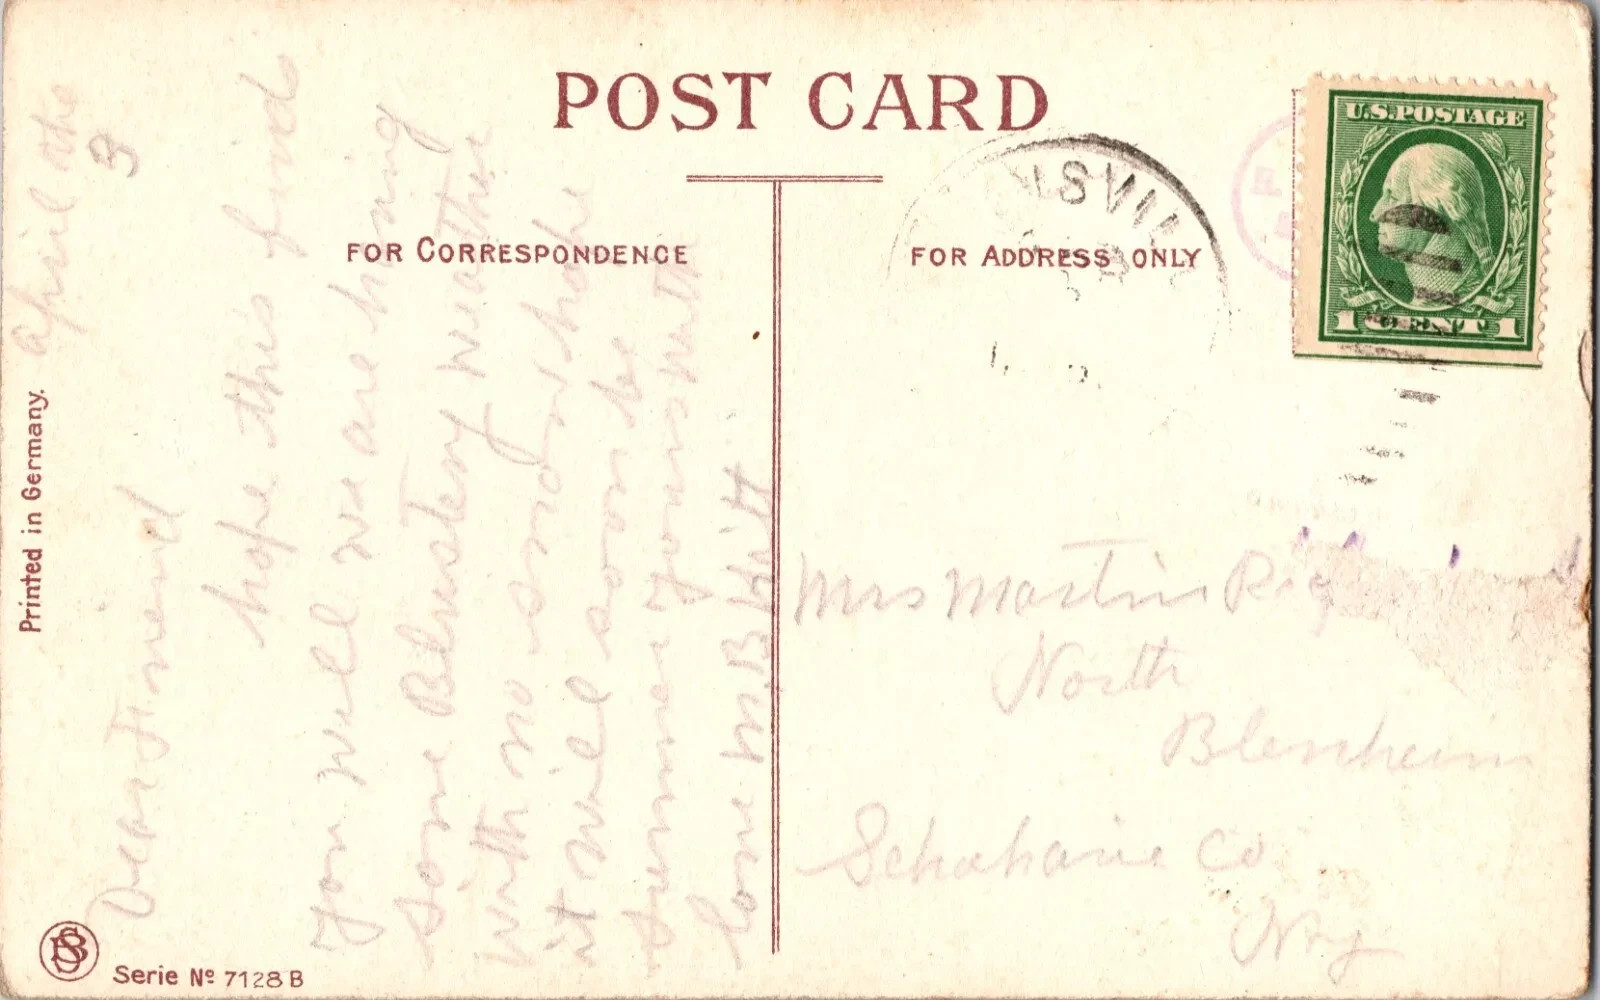 POST CARD
FOR CORRESPONDENCE
FOR ADDRESS ONLY
U.S. POSTAGE
1 CENT 1
SVILL
Printed in Germany.
Serie No 7128 B
April the
3
Dear Friend
hope this finds
you well we are having
some Blustery weather
with no snow
it will soon be
summer yours with
love M. B.
Mrs Martin
North
Blenheim
Schoharie Co
N y